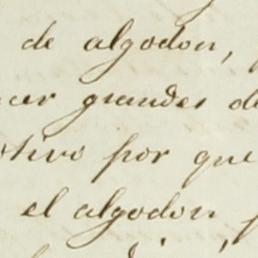 de algodon,
cer grandes de
otivo por que
el algodon p